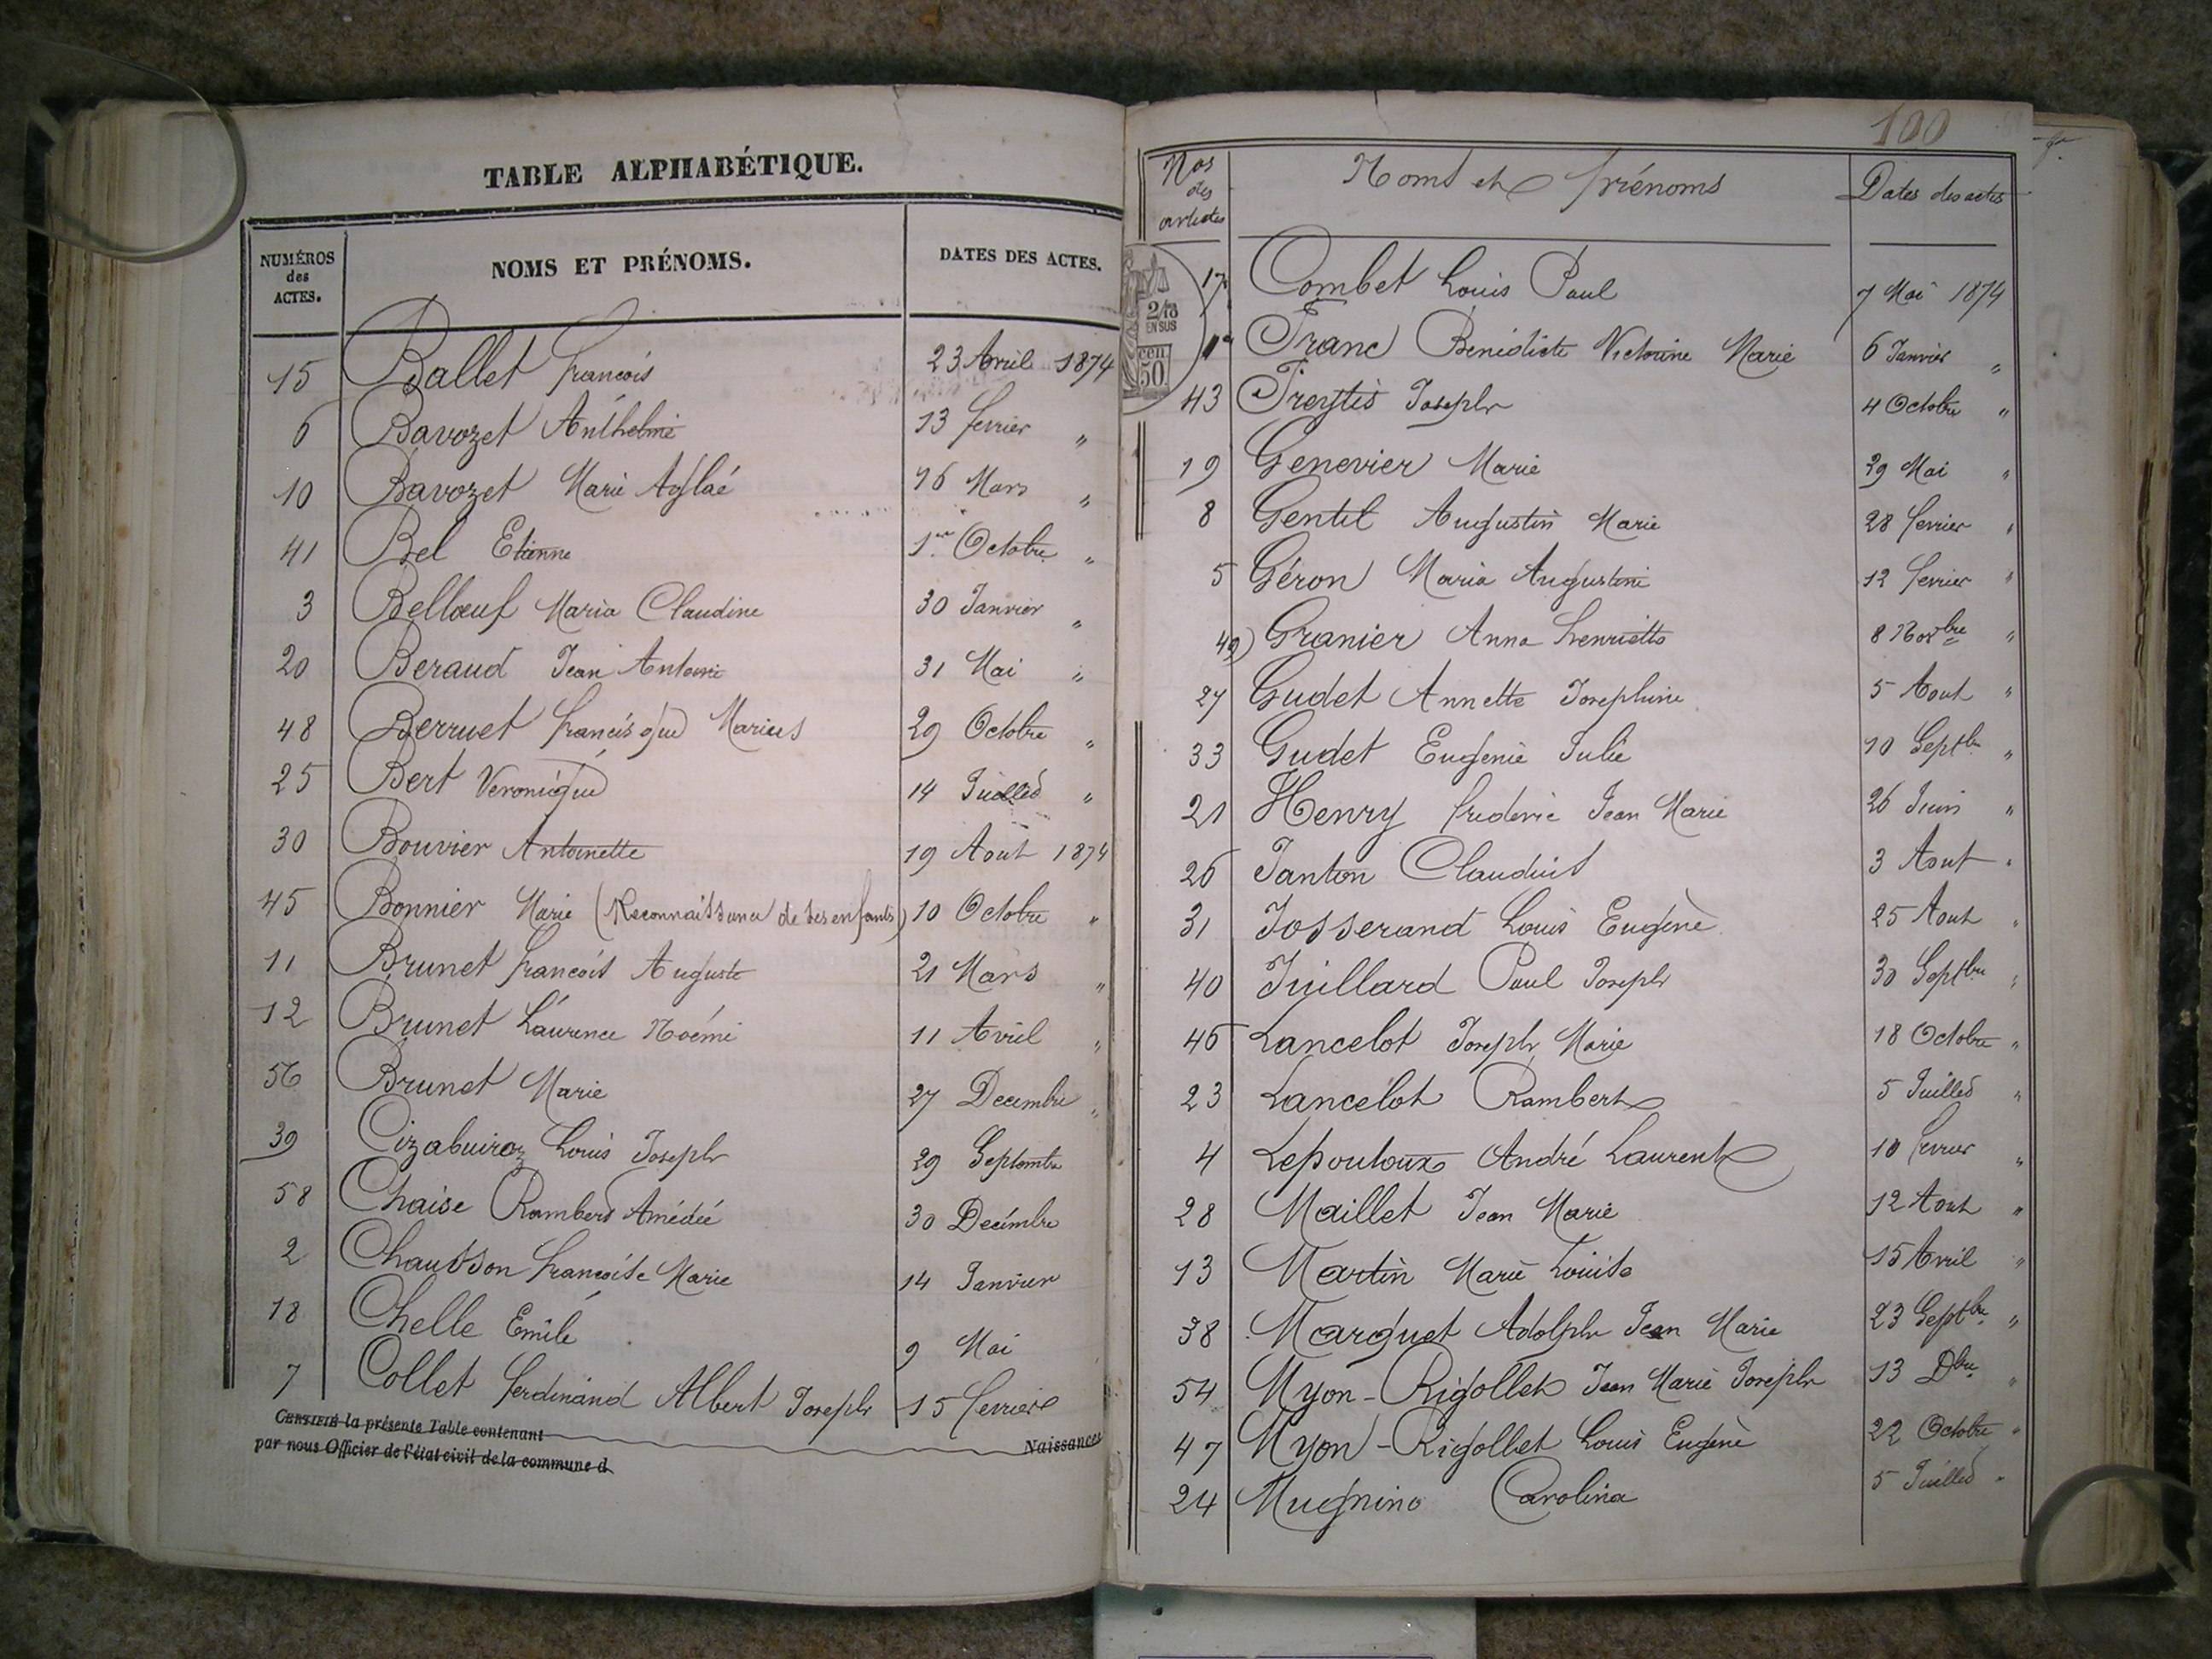 TABLE ALPHABÉTIQUE.
NUMÉROS des ACTES. NOMS ET PRÉNOMS. DATES DES ACTES.
15 Ballet francois 23 Avril 1874
6 Bavozet Anthelme 13 fevrier "
10 Bavozet Marie Aglaé 16 Mars "
41 Bel Etienne 1er Octobre "
3 Bellœuf Maria Claudine 30 Janvier "
20 Beraud Jean Antoine 31 Mai "
48 Berruet francisque Marius 29 Octobre "
25 Bert Veronique 14 Juillet "
30 Bouvier Antoinette 19 Aout 1874
45 Bonnier Marie (Reconnaissance de ses enfants) 10 Octobre "
11 Brunet francois Auguste 21 Mars "
12 Brunet Laurence Noémi 11 Avril "
56 Brunet Marie 27 Decembre "
39 Cizabuiroz Louis Joseph 29 Septembre
58 Chaise Rambert Amédée 30 Decembre
2 Chausson francoise Marie 14 Janvier
18 Chelle Emile 9 Mai
7 Collet ferdinand Albert Joseph 15 fevrier
CERTIFIÉ la présente Table contenant Naissances
par nous Officier de l'état civil de la commune d
100
Nos des articles Noms et prénoms Dates des actes
2/10 EN SUS
cen 50
17 Combet Louis Paul 7 Mai 1874
1er Franc Benedicte Victorine Marie 6 Janvier "
43 Freytis Joseph 4 Octobre "
19 Genevier Marie 29 Mai "
8 Gentil Augustin Marie 28 fevrier "
5 Géron Maria Augustine 12 fevrier "
49 Granier Anna henriette 8 Novbre "
27 Gudet Annette Josephine 5 Aout "
33 Gudet Eugenie Julie 10 Septbre "
21 Henry frederic Jean Marie 26 Juin "
26 Janton Claudius 3 Aout "
31 Josserand Louis Eugène 25 Aout "
40 Juillard Paul Joseph 30 Septbre "
46 Lancelot Joseph Marie 18 Octobre "
23 Lancelot Rambert 5 Juillet "
4 Lepouloux André Laurent 10 fevrier "
28 Maillet Jean Marie 12 Aout "
13 Martin Marie Louise 15 Avril "
38 Marguet Adolphe Jean Marie 23 Septbre "
54 Myon-Rigollet Jean Marie Joseph 13 Dbre "
47 Myon-Rigollet Louis Eugène 22 Octobre "
24 Mugnino Carolina 5 Juillet "